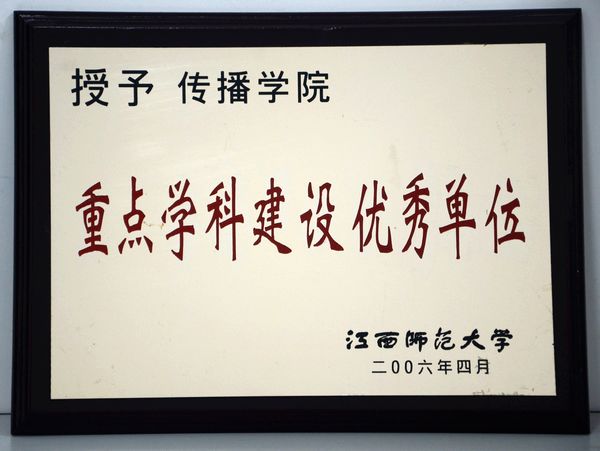 授予 传播学院
重点学科建设优秀单位
江西师范大学
二00六年四月